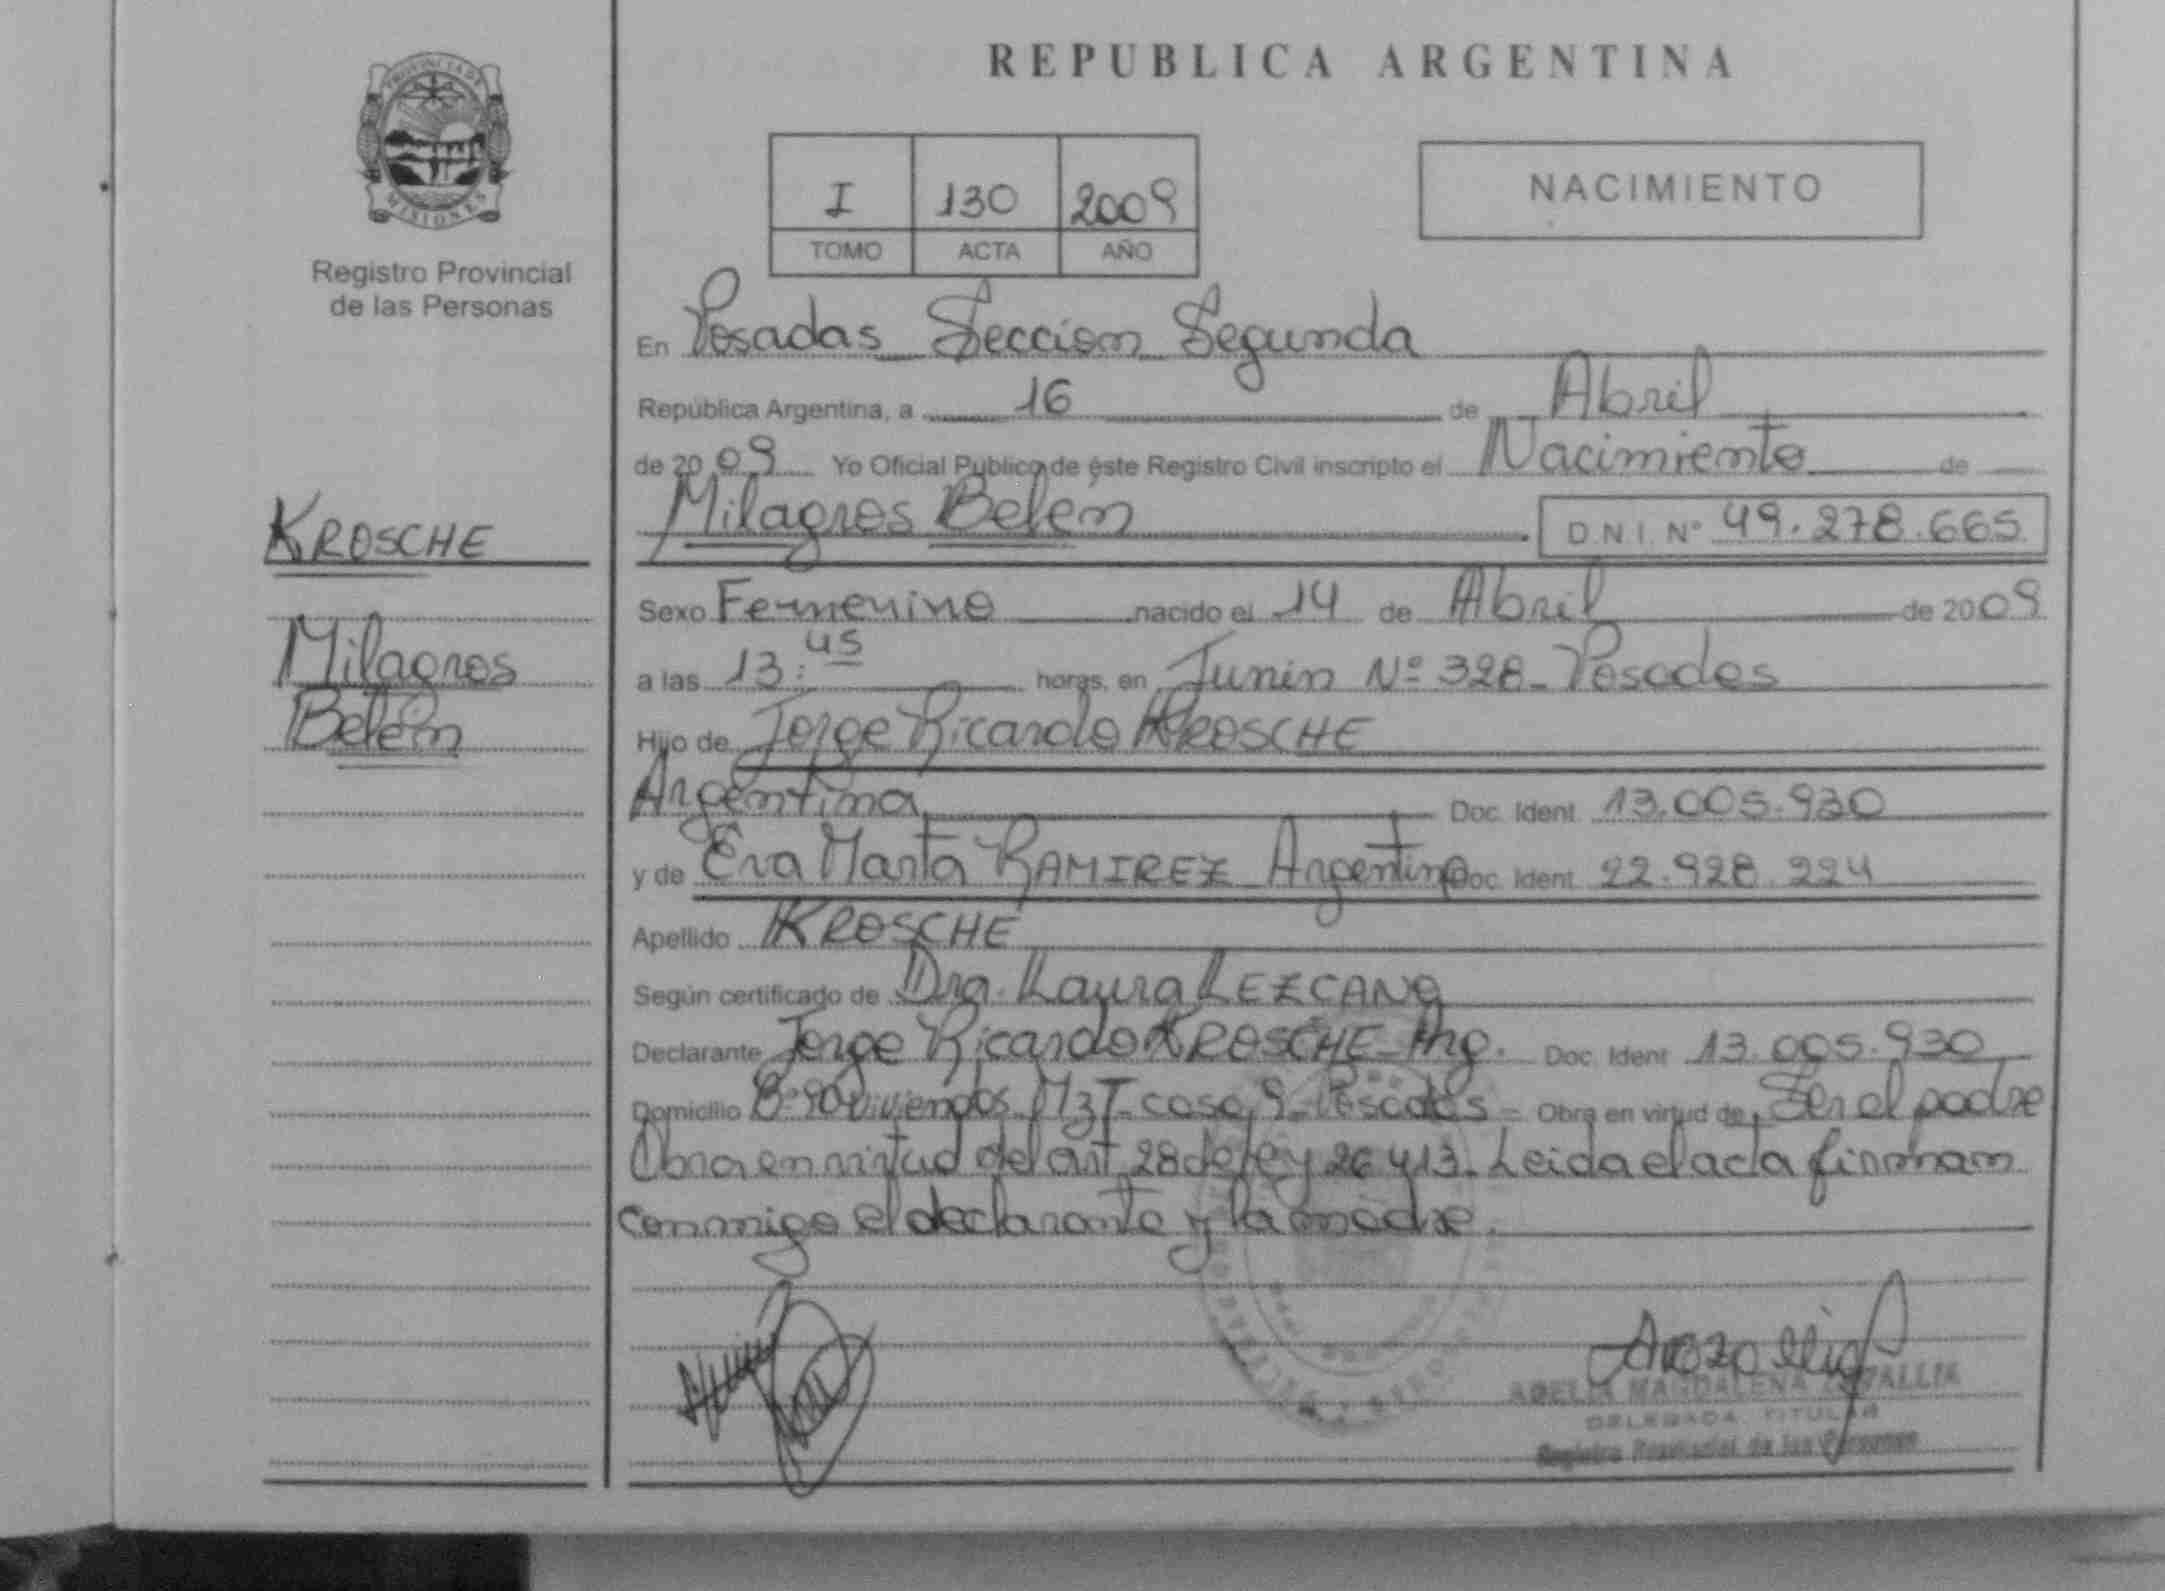 PROVINCIA DE
MISIONES
Registro Provincial
de las Personas
KROSCHE
Milagros
Belén
REPUBLICA ARGENTINA
I 130 2009
TOMO ACTA AÑO
NACIMIENTO
En Posadas Seccion Segunda
República Argentina, a 16 de Abril
de 2009 Yo Oficial Público de éste Registro Civil inscripto el Nacimiento de
Milagros Belen D.N.I. Nº 49.278.665
Sexo Femenino nacido el 14 de Abril de 2009
a las 13:45 horas, en Junin Nº 328 - Posadas
Hijo de Jorge Ricardo KROSCHE
Argentina Doc. Ident. 13.005.930
y de Eva Marta RAMIREZ - Argentina Doc. Ident. 22.928.224
Apellido KROSCHE
Según certificado de Dra. Laura LEZCANO
Declarante Jorge Ricardo KROSCHE - Arg. Doc. Ident. 13.005.930
Domicilio Bº 90 Viviendas Mz T casa 9 - Posadas - Obra en virtud de Ser el padre
Obra en virtud del art 28 de ley 26413. Leida el acta firman
conmigo el declarante y la madre.
ADELIA MAGDALENA
DELEGADA TITULAR
Registro Provincial de las Personas